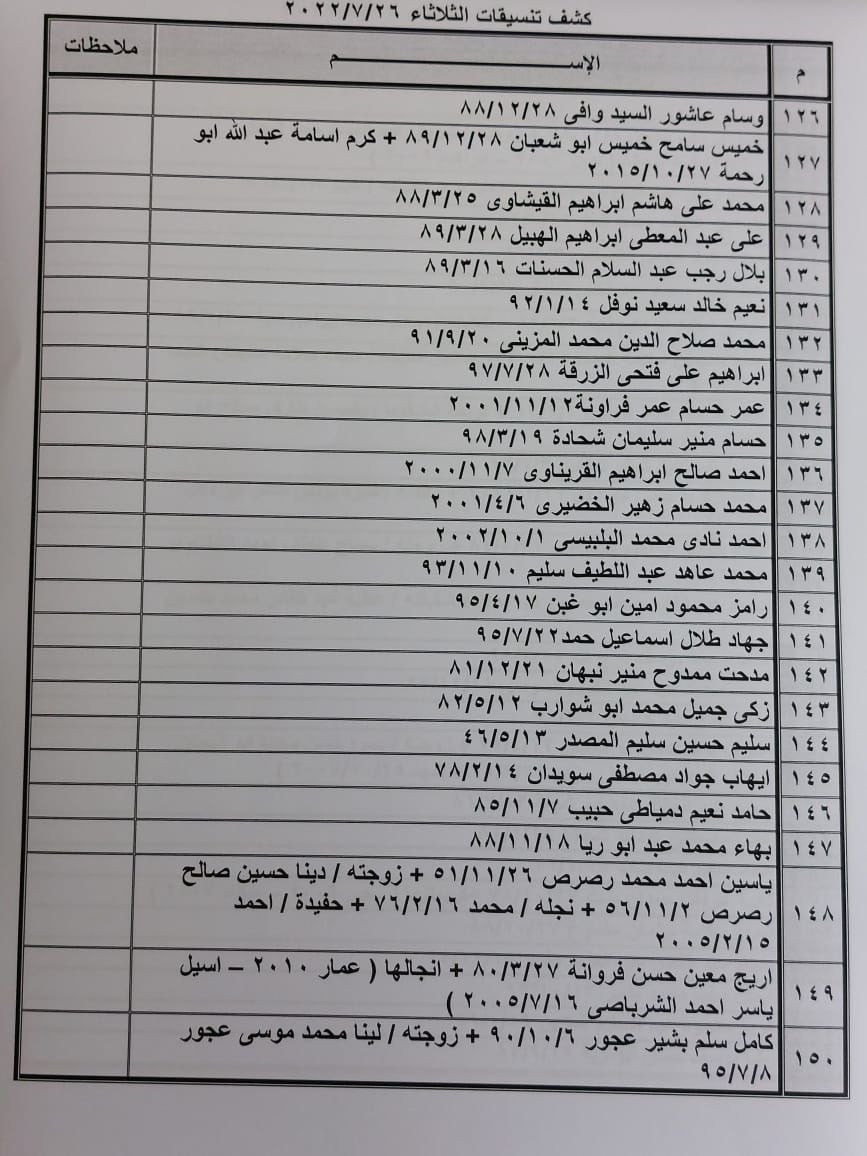 كشف تنسيقات الثلاثاء ٢٠٢٢/٧/٢٦
م الإســـــــم ملاحظات
١٢٦ وسام عاشور السيد وافى ٨٨/١٢/٢٨
١٢٧ خميس سامح خميس ابو شعبان ٨٩/١٢/٢٨ + كرم اسامة عبد الله ابو
رحمة ٢٠١٥/١٠/٢٧
١٢٨ محمد على هاشم ابراهيم القيشاوى ٨٨/٣/٢٥
١٢٩ على عبد المعطى ابراهيم الهبيل ٨٩/٣/٢٨
١٣٠ بلال رجب عبد السلام الحسنات ٨٩/٣/١٦
١٣١ نعيم خالد سعيد نوفل ٩٢/١/١٤
١٣٢ محمد صلاح الدين محمد المزينى ٩١/٩/٢٠
١٣٣ ابراهيم على فتحى الزرقة ٩٧/٧/٢٨
١٣٤ عمر حسام عمر فراونة٢٠٠١/١١/١٢
١٣٥ حسام منير سليمان شحادة ٩٨/٣/١٩
١٣٦ احمد صالح ابراهيم القريناوى ٢٠٠٠/١١/٧
١٣٧ محمد حسام زهير الخضيرى ٢٠٠١/٤/٦
١٣٨ احمد نادى محمد البلبيسى ٢٠٠٢/١٠/١
١٣٩ محمد عاهد عبد اللطيف سليم ٩٣/١١/١٠
١٤٠ رامز محمود امين ابو غبن ٩٥/٤/١٧
١٤١ جهاد طلال اسماعيل حمد٩٥/٧/٢٢
١٤٢ مدحت ممدوح منير نبهان ٨١/١٢/٢١
١٤٣ زكى جميل محمد ابو شوارب ٨٢/٥/١٢
١٤٤ سليم حسين سليم المصدر ٤٦/٥/١٣
١٤٥ ايهاب جواد مصطفى سويدان ٧٨/٢/١٤
١٤٦ حامد نعيم دمياطى حبيب ٨٥/١١/٧
١٤٧ بهاء محمد عبد ابو ريا ٨٨/١١/١٨
١٤٨ ياسين احمد محمد رصرص ٥١/١١/٢٦ + زوجته / دينا حسين صالح
رصرص ٥٦/١١/٢ + نجله / محمد ٧٦/٢/١٦ + حفيدة / احمد
٢٠٠٥/٢/١٥
١٤٩ اريج معين حسن فروانة ٨٠/٣/٢٧ + انجالها ( عمار ٢٠١٠ – اسيل
ياسر احمد الشرباصى ٢٠٠٥/٧/١٦ )
١٥٠ كامل سلم بشير عجور ٩٠/١٠/٦ + زوجته / لينا محمد موسى عجور
٩٥/٧/٨